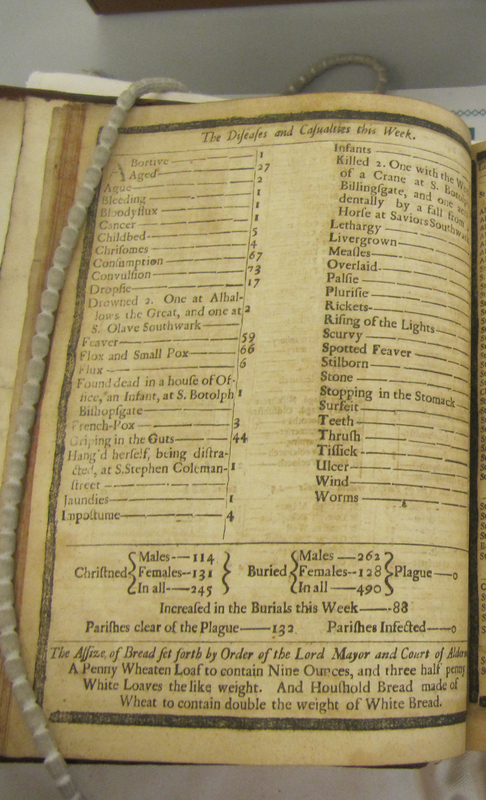 The Diſeaſes and Caſualties this Week.
Abortive 1
Aged 27
Ague 2
Bleeding 1
Bloodyflux 1
Cancer 1
Childbed 5
Chriſomes 4
Conſumption 67
Convulſion 73
Dropſie 17
Drowned 2. One at Alhal-
lows the Great, and one at 2
S. Olave Southwark
Feaver 59
Flox and Small Pox 66
Flux 6
Found dead in a houſe of Of-
fice, an Infant, at S. Botolph 1
Biſhopſgate
French-Pox 3
Griping in the Guts 44
Hang'd herſelf, being diſtra-
cted, at S. Stephen Coleman- 1
ſtreet
Jaundies 1
Impoſtume 4
Infants
Killed 2. One with the
of a Crane at S.
Billingſgate, and one
dentally by a fall from
Horſe at Saviors Southwark
Lethargy
Livergrown
Meaſles
Overlaid
Palſie
Pluriſie
Rickets
Riſing of the Lights
Scurvy
Spotted Feaver
Stilborn
Stone
Stopping in the Stomack
Surfeit
Teeth
Thruſh
Tiſſick
Ulcer
Wind
Worms
Chriſtned { Males 114 Females 131 In all 245 } Buried { Males 262 Females 128 In all 490 } Plague 0
Increaſed in the Burials this Week 88
Pariſhes clear of the Plague 132 Pariſhes Infected 0
The Aſſize of Bread ſet forth by Order of the Lord Mayor and Court of
A Penny Wheaten Loaf to contain Nine Ounces, and three half penny
White Loaves the like weight. And Houſhold Bread made of
Wheat to contain double the weight of White Bread.